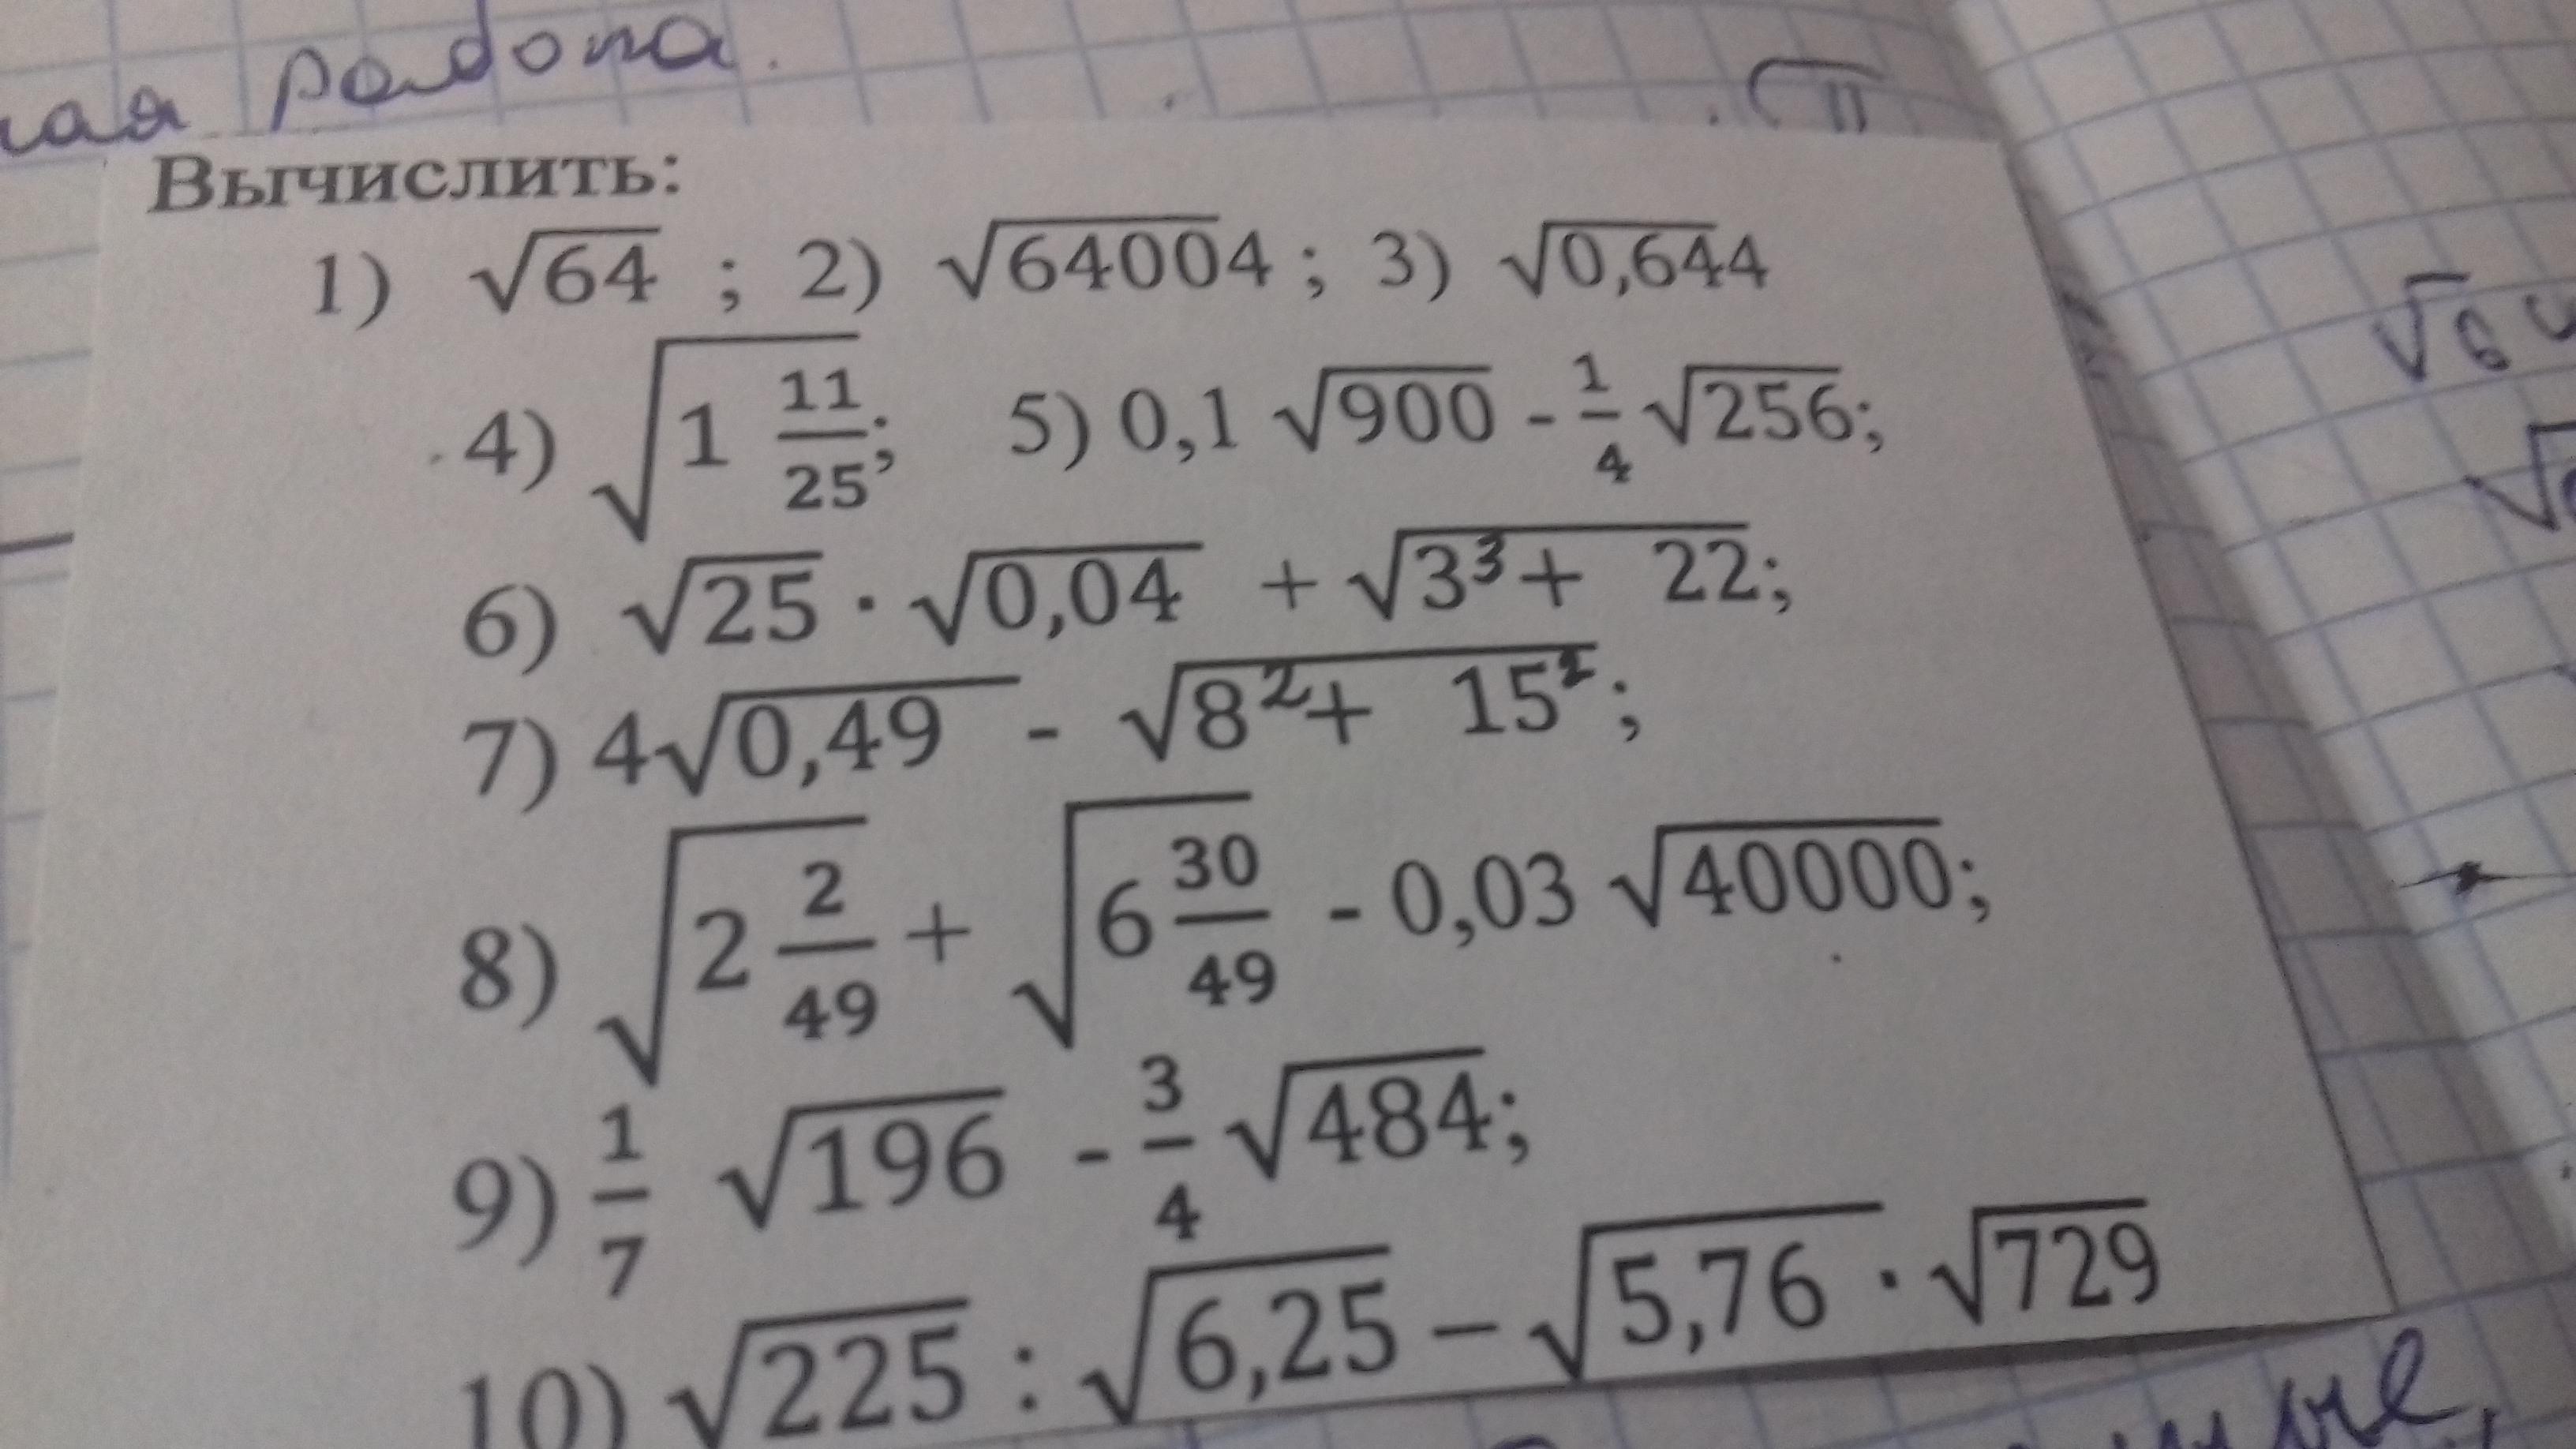 ная работа.
Вычислить:
1) √64 ; 2) √64004 ; 3) √0,644
4) √1 11/25; 5) 0,1 √900 - 1/4 √256;
6) √25 · √0,04 + √3³+ 22;
7) 4√0,49 - √8²+ 15² ;
8) √2 2/49 + √6 30/49 - 0,03 √40000;
9) 1/7 √196 - 3/4 √484;
10) √225 : √6,25 – √5,76 · √729